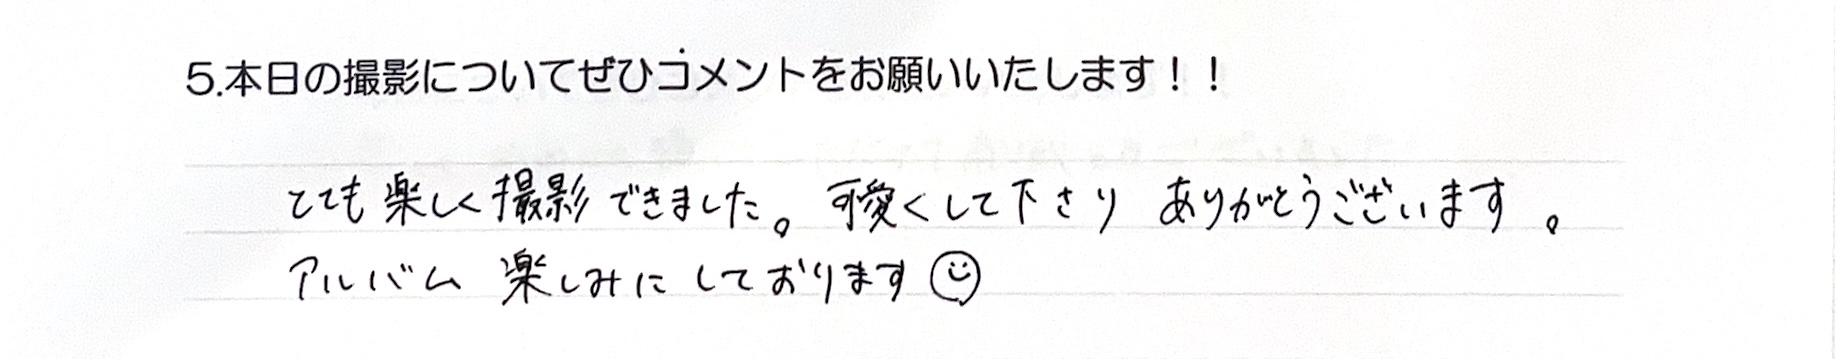 5.本日の撮影についてぜひコメントをお願いいたします！！
とても楽しく撮影できました。可愛くして下さり ありがとうございます。
アルバム 楽しみにしております☺